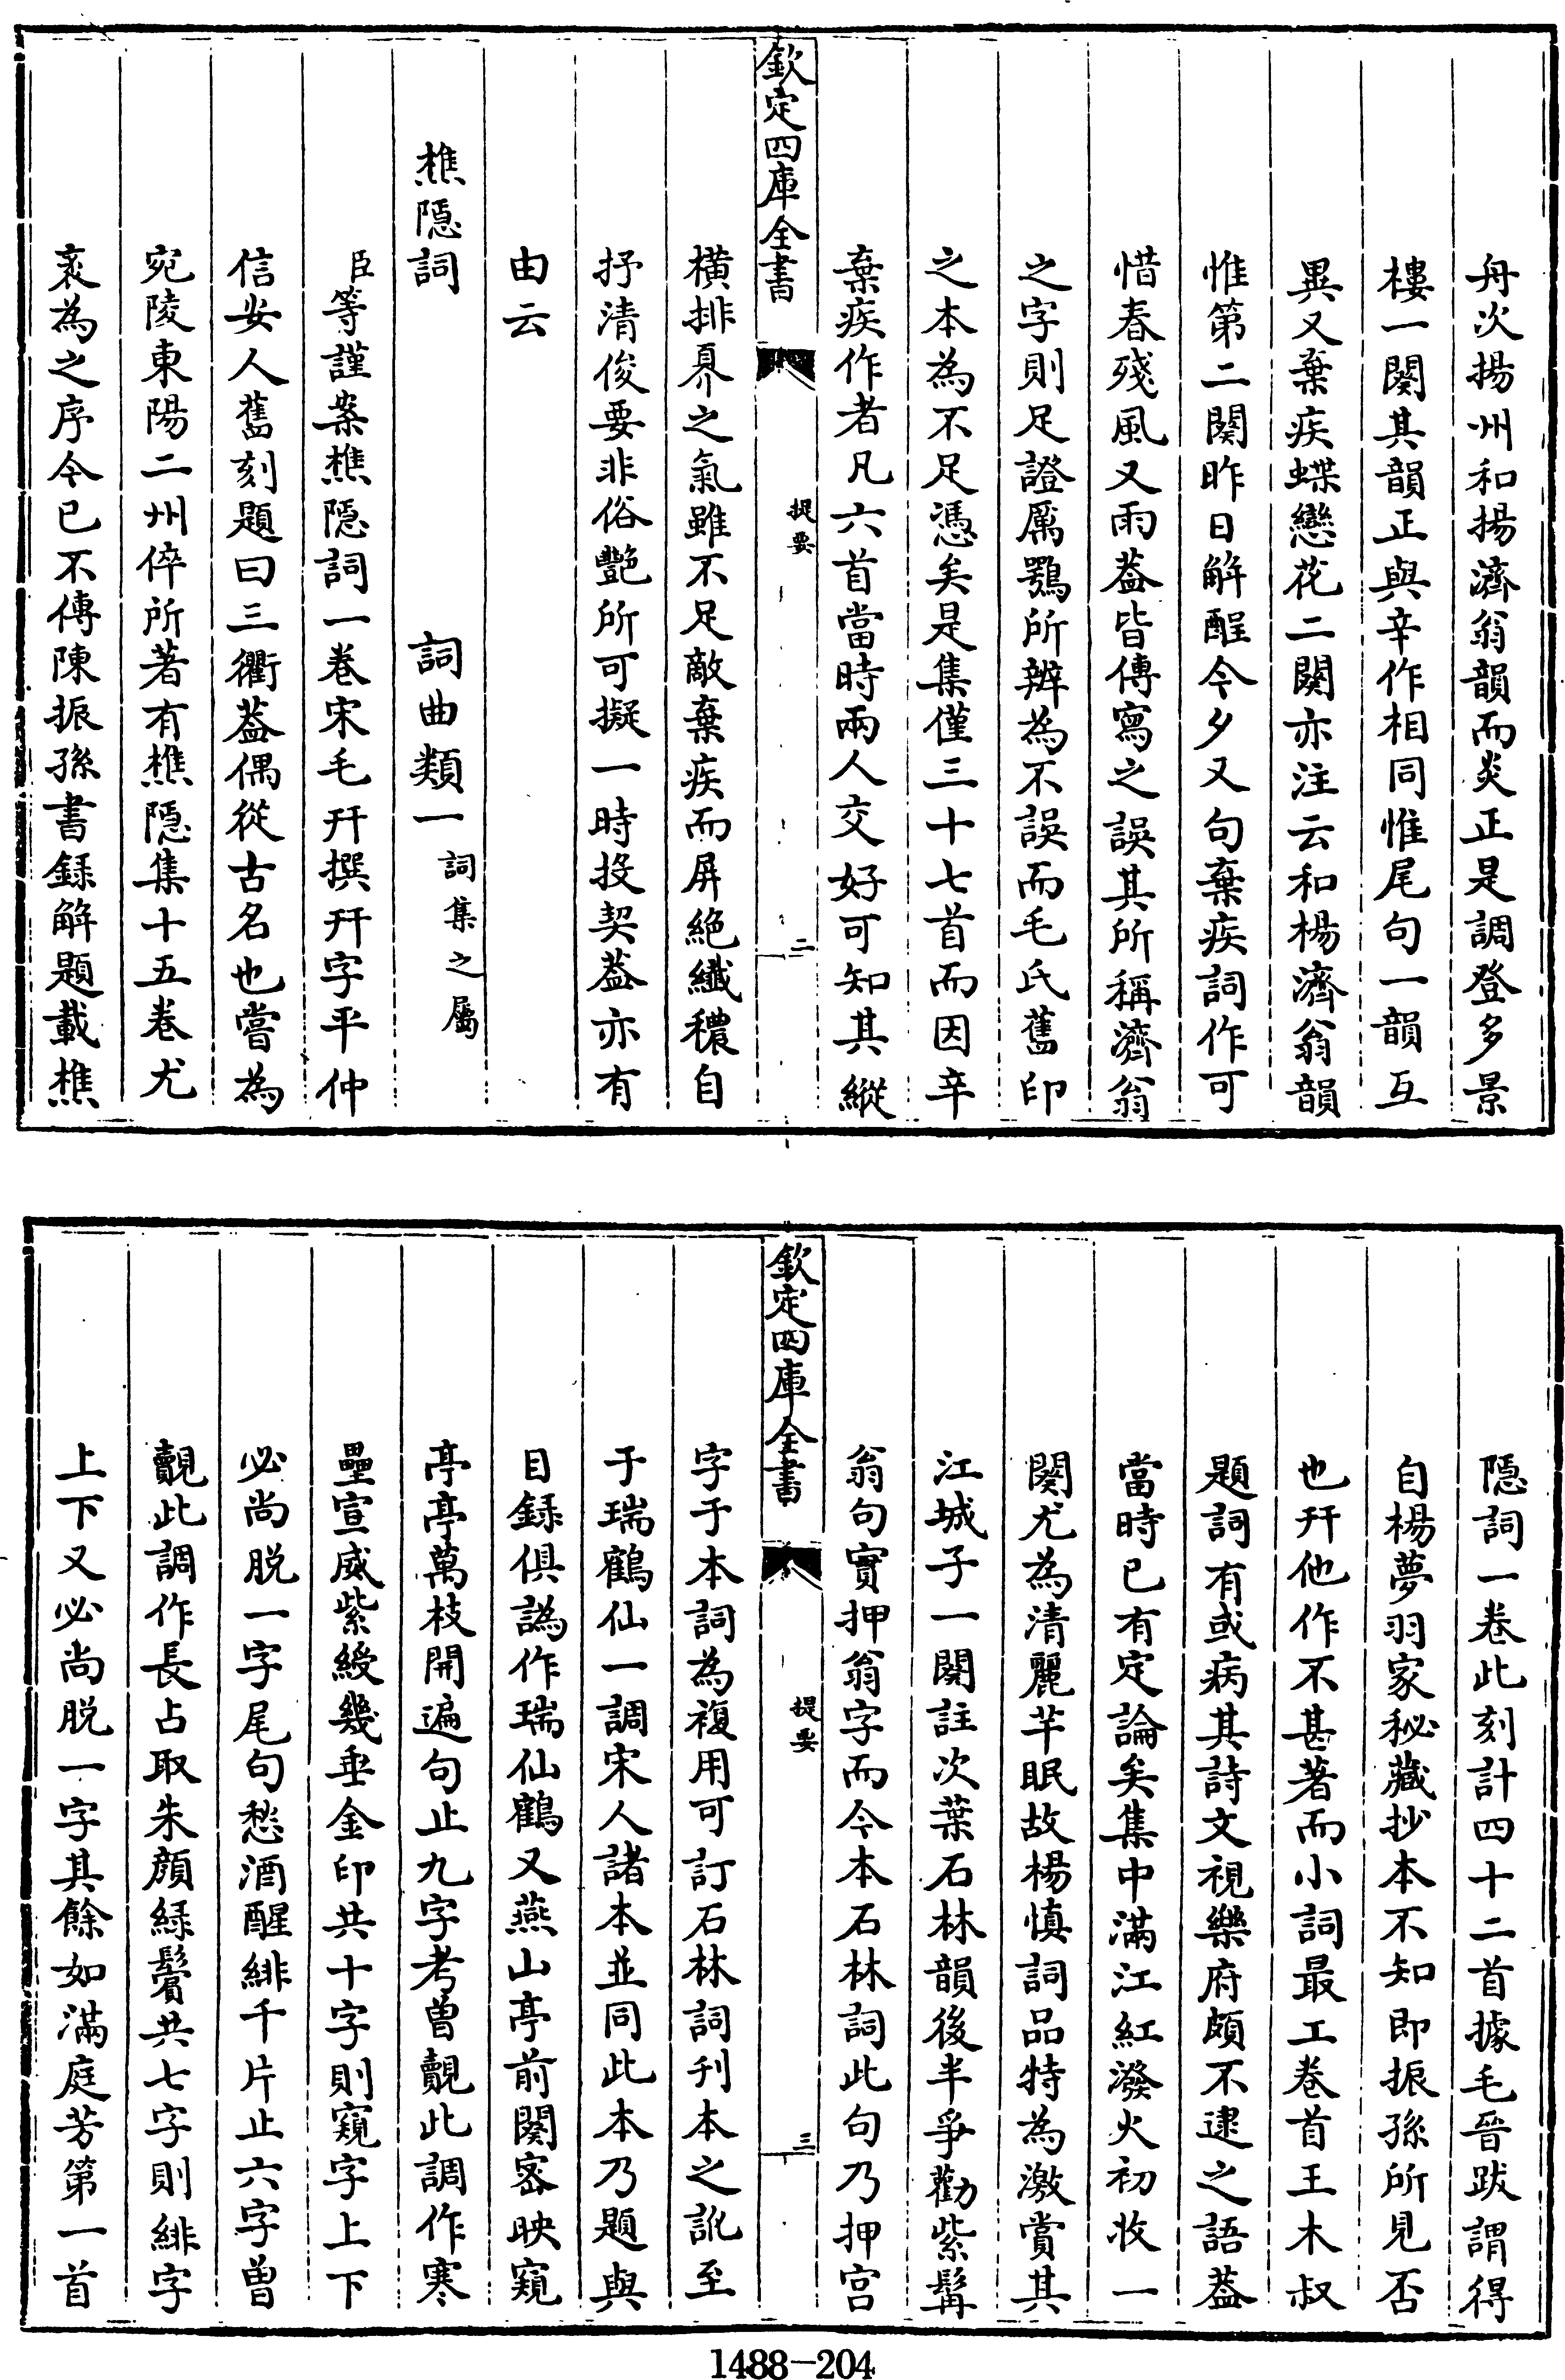 舟次揚州和揚濟翁韻而炎正是調登多景
樓一闋其韻正與辛作相同惟尾句一韻互
異又棄疾蝶戀花二闋亦注云和楊濟翁韻
惟第二闋昨日解酲今夕又句棄疾詞作可
惜春殘風又雨葢皆傳寫之誤其所稱濟翁
之字則足證厲鶚所辨為不誤而毛氏舊印
之本為不足憑矣是集僅三十七首而因辛
棄疾作者凡六首當時兩人交好可知其縱
欽定四庫全書
提要
二
橫排奡之氣雖不足敵棄疾而屏絶纎穠自
抒清俊要非俗艷所可擬一時投契葢亦有
由云
樵隱詞 詞曲類一 詞集之屬
臣等謹案樵隱詞一卷宋毛幵撰幵字平仲
信安人舊刻題曰三衢葢偶從古名也嘗為
宛陵東陽二州倅所著有樵隱集十五卷尤
袤為之序今已不傳陳振孫書録解題載樵
隱詞一卷此刻計四十二首據毛晉跋謂得
自楊夢羽家秘藏抄本不知即振孫所見否
也幵他作不甚著而小詞最工卷首王木叔
題詞有或病其詩文視樂府頗不逮之語葢
當時已有定論矣集中滿江紅潑火初收一
闋尤為清麗芊眠故楊慎詞品特為激賞其
江城子一闋註次葉石林韻後半爭勸紫髯
翁句實押翁字而今本石林詞此句乃押宫
欽定四庫全書
提要
三
字于本詞為複用可訂石林詞刋本之訛至
于瑞鶴仙一調宋人諸本並同此本乃題與
目録俱譌作瑞仙鶴又燕山亭前闋密映窺
亭亭萬枝開遍句止九字考曾覿此調作寒
壘宣威紫綬幾垂金印共十字則窺字上下
必尚脱一字尾句愁酒醒緋千片止六字曾
覿此調作長占取朱顔緑鬢共七字則緋字
上下又必尚脱一字其餘如滿庭芳第一首
1488—204